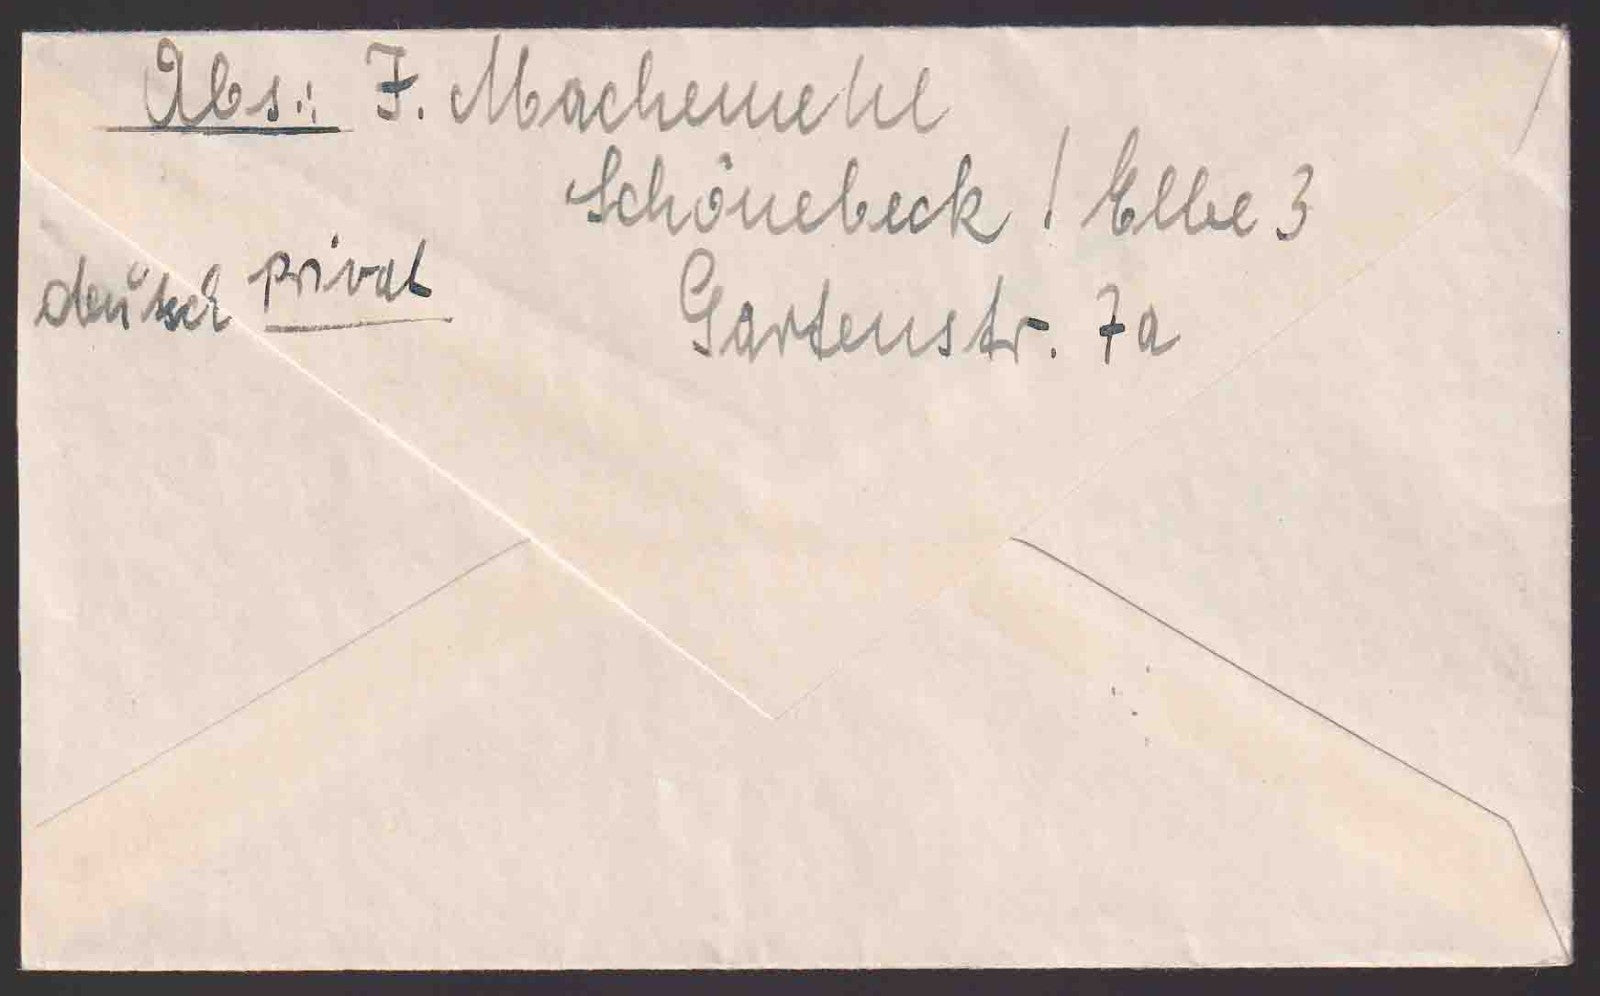 Abs.: F. Machemehl
Schönebeck / Elbe 3
deutsch privat
Gartenstr. 7a